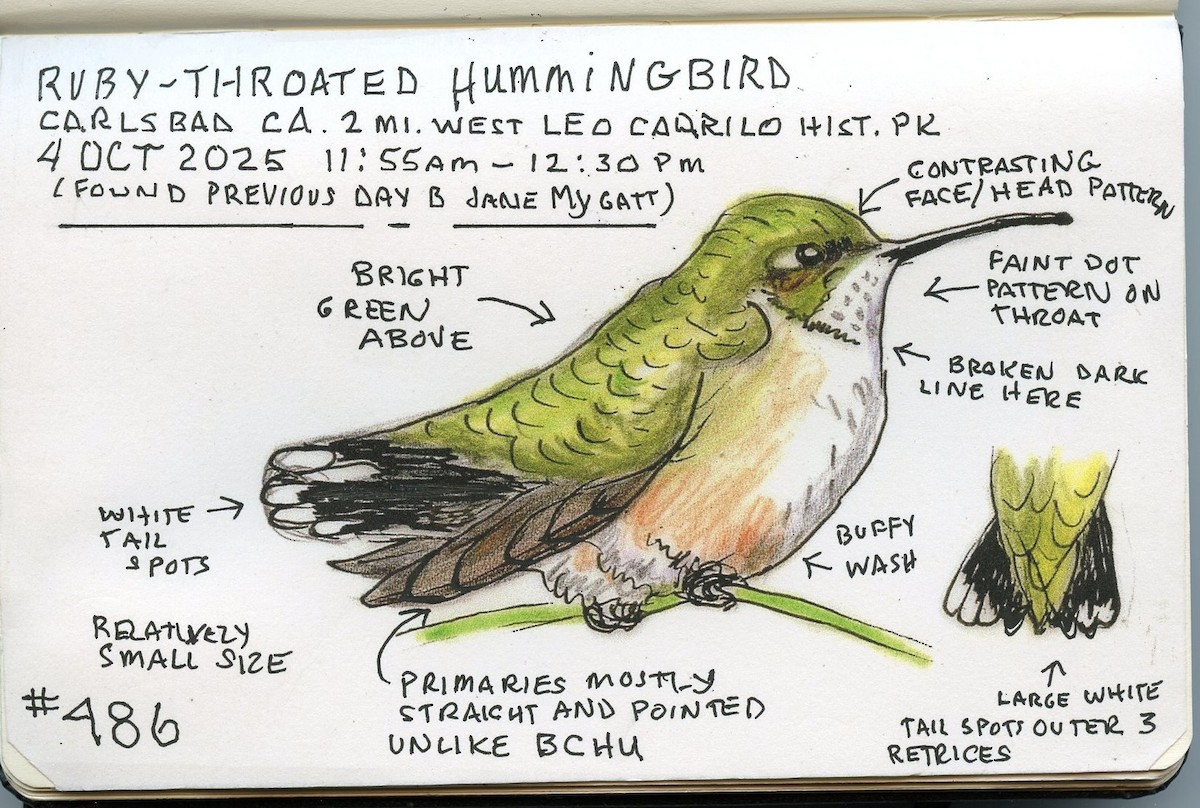 RUBY-THROATED HUMMINGBIRD
CARLSBAD CA. 2 MI. WEST LEO CARRILO HIST. PK
4 OCT 2025 11:55AM - 12:30 PM
(FOUND PREVIOUS DAY B JANE MYGATT)
CONTRASTING
FACE/HEAD PATTERN
BRIGHT
GREEN
ABOVE
FAINT DOT
PATTERN ON
THROAT
BROKEN DARK
LINE HERE
WHITE
TAIL
SPOTS
BUFFY
WASH
RELATIVELY
SMALL SIZE
#486
PRIMARIES MOSTLY
STRAIGHT AND POINTED
UNLIKE BCHU
LARGE WHITE
TAIL SPOTS OUTER 3
RETRICES